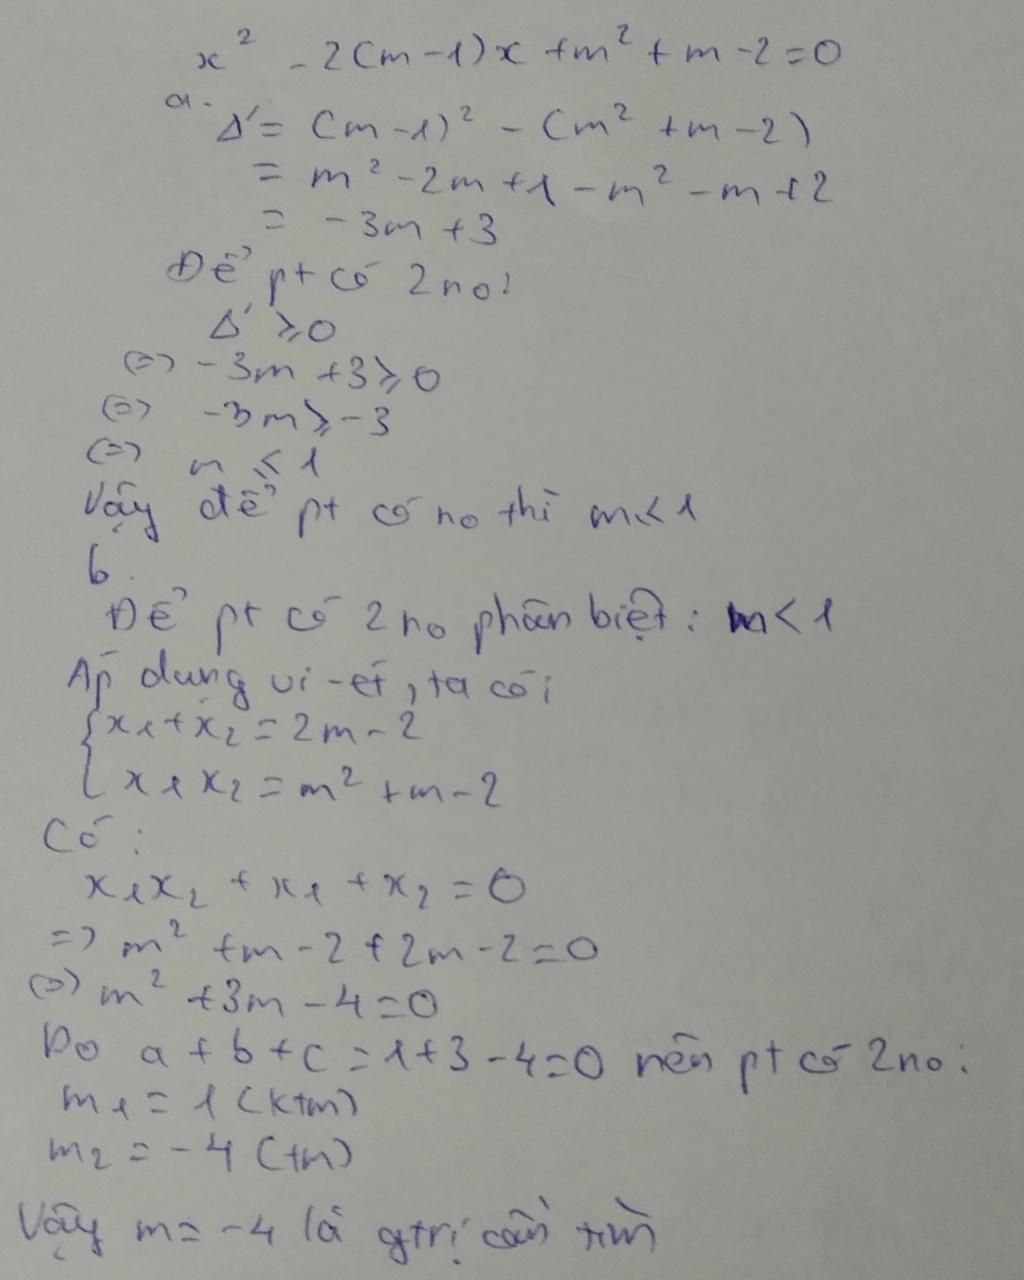 x² - 2(m-1)x + m² + m - 2 = 0
a.
Δ' = (m-1)² - (m² + m - 2)
= m² - 2m + 1 - m² - m + 2
= -3m + 3
Để pt có 2 no:
Δ' ≥ 0
(=) -3m + 3 ≥ 0
(=) -3m ≥ -3
(=) m ≤ 1
Vậy để pt có no thì m < 1
b.
Để pt có 2 no phân biệt: m < 1
Áp dụng vi-ét, ta có:
{ x₁ + x₂ = 2m - 2
x₁x₂ = m² + m - 2
Có:
x₁x₂ + x₁ + x₂ = 0
=> m² + m - 2 + 2m - 2 = 0
(=) m² + 3m - 4 = 0
Do a + b + c = 1 + 3 - 4 = 0 nên pt có 2 no:
m₁ = 1 (ktm)
m₂ = -4 (tm)
Vậy m = -4 là gtrị cần tìm